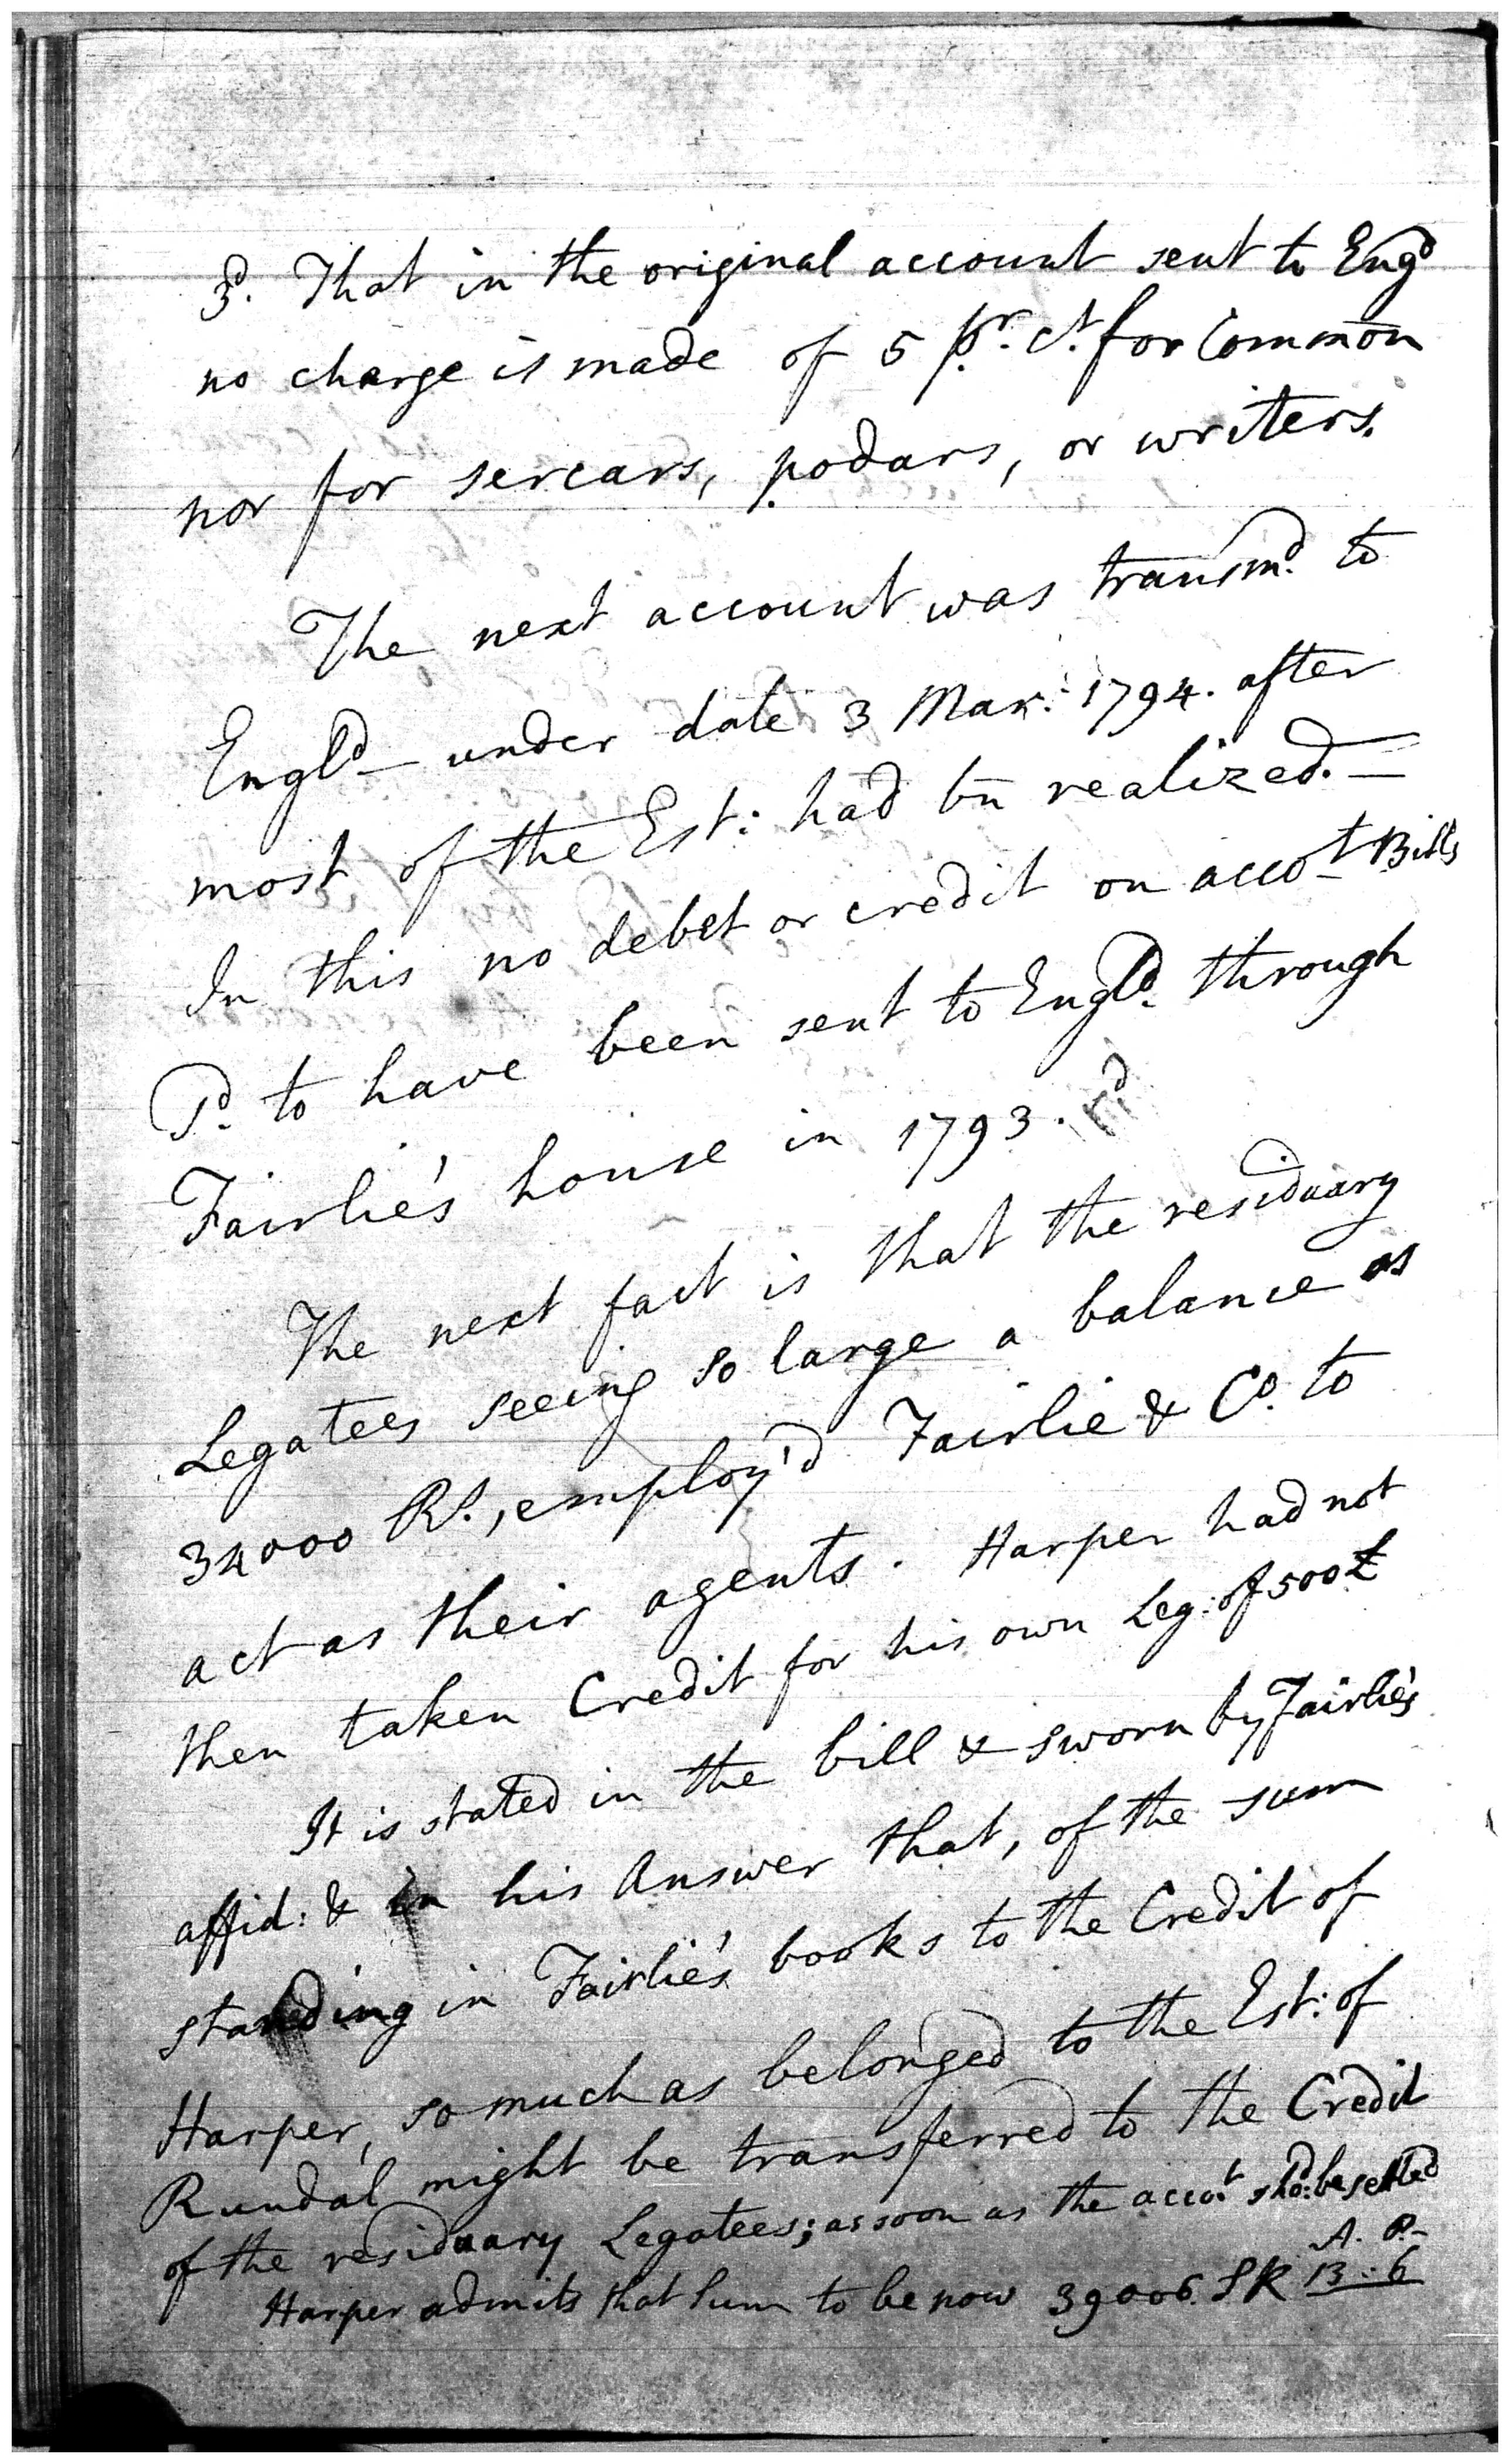 3d. That in the original account sent to Engd
no charge is made of 5 pr. ct. for Common
nor for sercars, podars, or writers.
The next account was transmd. to
Engld— under date 3 Mar: 1794. after
most of the Est: had bn realized.—
In this no debet or credit on accot Bills
sd. to have been sent to Engld. through
Fairlie's house in 1793.
The next fact is that the residuary
Legatees seeing so large a balance as
34000 Rs., employ'd Fairlie & Co. to
act as their agents. Harper had not
then taken Credit for his own Leg: of 500£
It is stated in the bill & sworn by Fairlie's
affid: & in his Answer that, of the sum
standing in Fairlie's books to the Credit of
Harper, so much as belonged to the Est: of
Rundal might be transferred to the Credit
of the residuary Legatees; as soon as the accot. shd: be settled
Harper admits that Sum to be now 39006. SR A. P.— 13:6